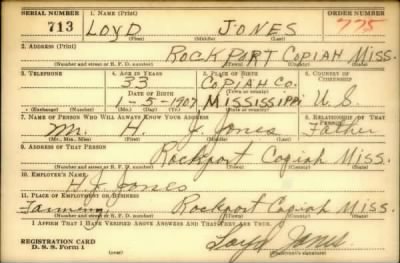 SERIAL NUMBER 1. Name (Print) ORDER NUMBER
713 LOYD JONES 775
(First) (Middle) (Last)
2. Address (Print)
ROCKPORT COPIAH MISS.
(Number and street or R. F. D. number) (Town) (County) (State)
3. Telephone 4. Age in Years 5. Place of Birth 6. Country of Citizenship
33 COPIAH CO.
Date of Birth
1-5-1907 MISSISSIPPI U.S.
(Exchange) (Number) (Mo.) (Day) (Yr.) (State or county)
7. Name of Person Who Will Always Know Your Address 8. Relationship of That Person
Mr. H. J. Jones Father
(Mr., Mrs., Miss) (First) (Middle) (Last)
9. Address of That Person
Rockport Copiah Miss.
(Number and street or R. F. D. number) (Town) (County) (State)
10. Employer's Name
H. J. Jones
11. Place of Employment or Business
Farming Rockport Copiah Miss.
(Number and street or R. F. D. number) (Town) (County) (State)
I Affirm That I Have Verified Above Answers and That They Are True.
REGISTRATION CARD
D. S. S. Form 1
Loyd Jones
(Registrant's signature)